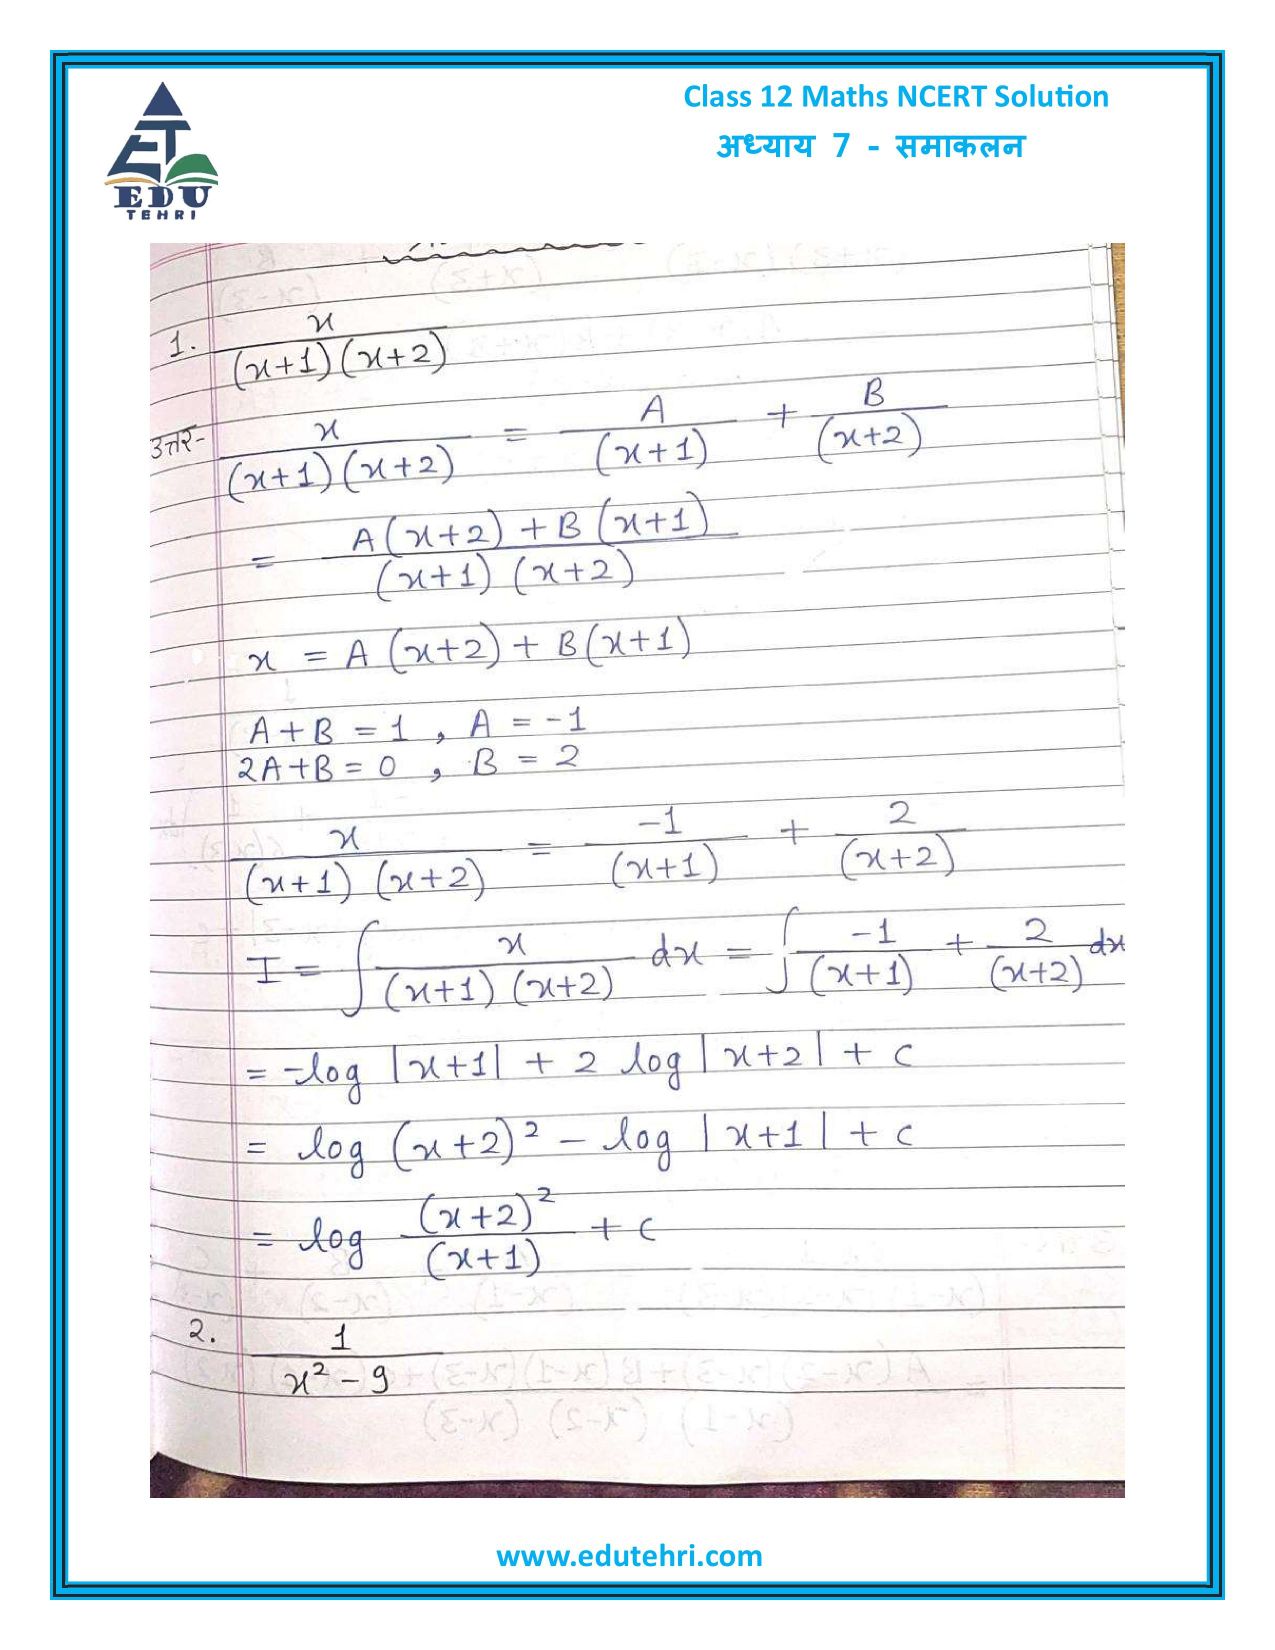 Class 12 Maths NCERT Solution
अध्याय 7 - समाकलन
EDU
TEHRI
1. x/((x+1)(x+2))
उत्तर- x/((x+1)(x+2)) = A/(x+1) + B/(x+2)
= (A(x+2) + B(x+1))/((x+1)(x+2))
x = A(x+2) + B(x+1)
A+B = 1, A = -1
2A+B = 0, B = 2
x/((x+1)(x+2)) = -1/(x+1) + 2/(x+2)
I = ∫ x/((x+1)(x+2)) dx = ∫ -1/(x+1) + 2/(x+2) dx
= -log |x+1| + 2 log |x+2| + c
= log (x+2)² - log |x+1| + c
= log (x+2)²/(x+1) + c
2. 1/(x² - 9)
www.edutehri.com